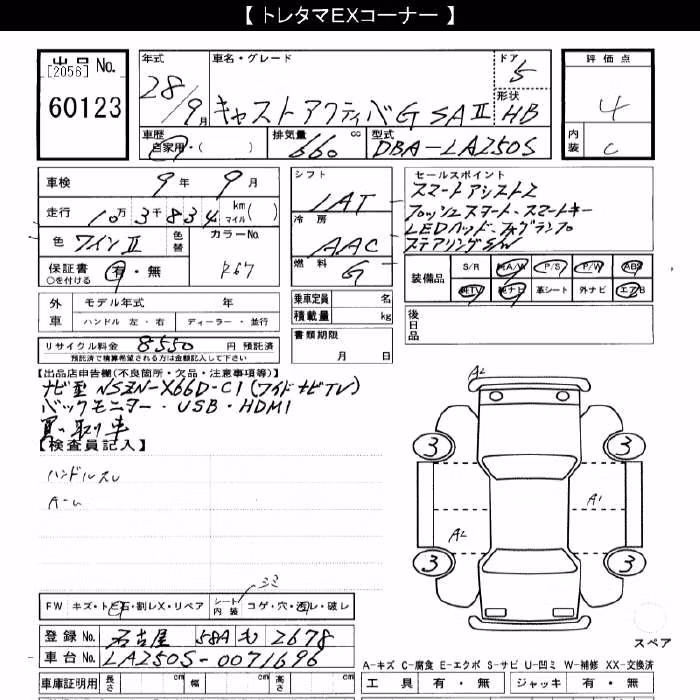 【 トレタマEXコーナー 】
出品 No.
[2056]
60123
年式 28/9月
車名・グレード キャスト アクティバG SAⅡ
ドア 5
形状 HB
評価点 4
内装 C
車歴 自家用・( )
排気量 660 cc
型式 DBA-LA250S
車検 9年 9月
走行 10万3千834 km マイル( )
色 ワインⅡ
色替
カラーNo. R67
保証書 有・無
○を付ける
シフト IAT
冷房 AAC
燃料 G
セールスポイント
スマートアシスト2
プッシュスタート・スマートキー
LEDヘッド・フォグランプ
ステアリングSW
装備品 S/R 純A/W P/S P/W ABS
純TV 純ナビ 革シート 外ナビ エアB
外車 モデル年式 年
ハンドル 左・右 ディーラー・並行
乗車定員 名
積載量 kg
後日品
リサイクル料金 8550 円 預託済
預託済で積算希望される方は金額記入して下さい
書類期限
月 日
【出品店申告欄(不良箇所・欠品・注意事項等)】
ナビ型 NSZN-X66D-C1 (ワイドナビTV)
バックモニター・USB・HDMI
買い取り車
【検査員記入】
ハンドルスレ
A-U
A2
3 3
A1
A2
3 3
スペア
FW キズ・トビ石・割レX・リペア
シート内装 コゲ・穴・透レ・破レ
シミ
登録 No. 名古屋 58A も 2678
車台 No. LA250S-0071696
A-キズ C-腐食 E-エクボ S-サビ U-凹ミ W-補修 XX-交換済
車庫証明用 長さ cm 幅 cm 高さ cm
工具 有・無 ジャッキ 有・無